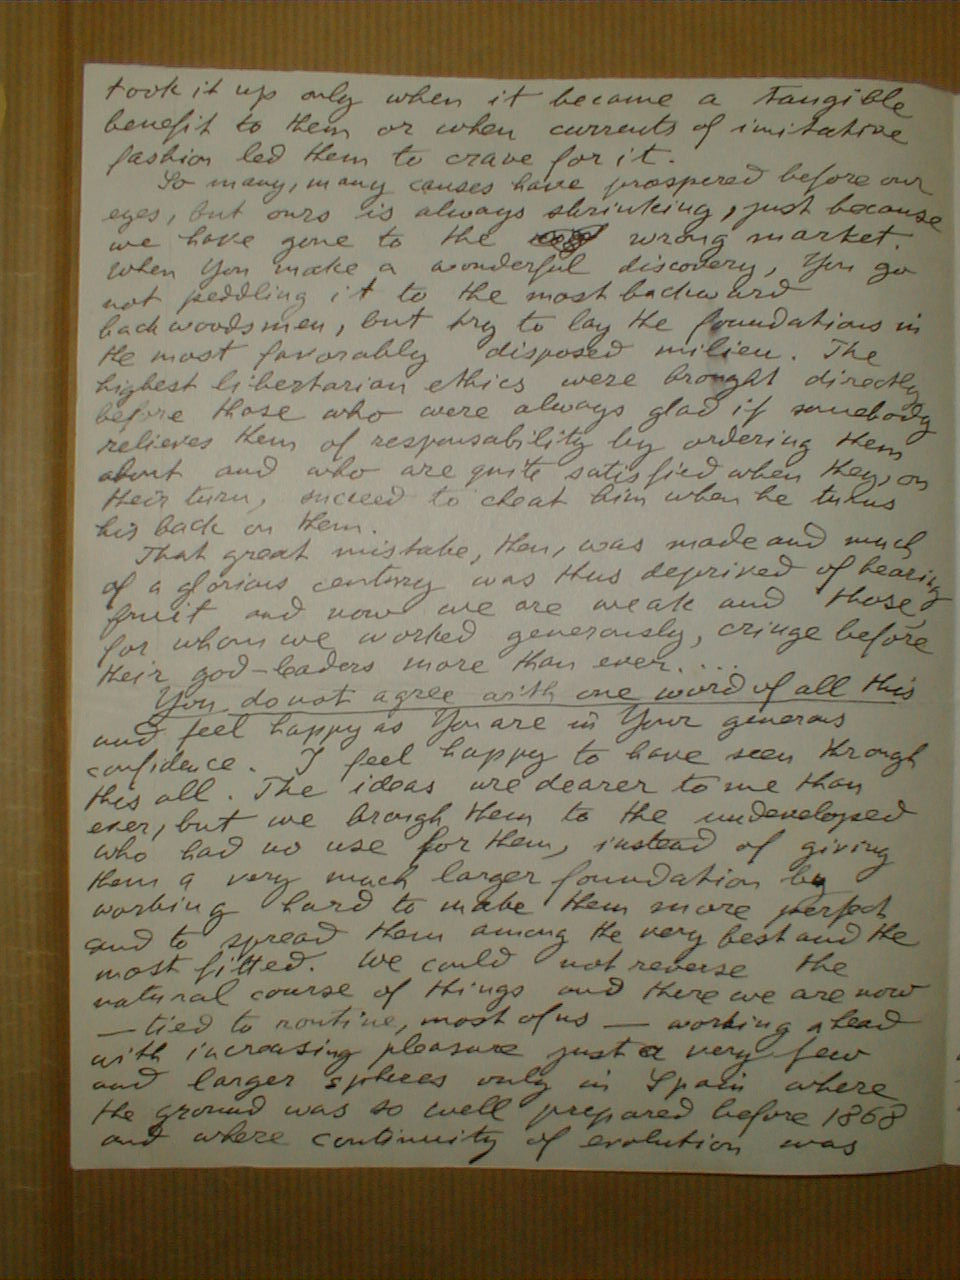 took it up only when it became a tangible
benefit to them or when currents of imitative
fashion led them to crave for it.
So many, many causes have prospered before our
eyes, but ours is always shrinking, just because
we have gone to the wrong market.
When You make a wonderful discovery, You go
not peddling it to the most backward
backwoodsmen, but try to lay the foundations in
the most favorably disposed milieu. The
highest libertarian ethics were brought directly
before those who were always glad if somebody
relieves them of responsability by ordering them
about and who are quite satisfied when they, on
their turn, succeed to cheat him when he turns
his back on them.
That great mistake, then, was made and much
of a glorious century was thus deprived of bearing
fruit and now we are weak and those,
for whom we worked generously, cringe before
their god-leaders more than ever....
You do not agree with one word of all this
and feel happy as You are in Your generous
confidence. I feel happy to have seen through
this all. The ideas are dearer to me than
ever, but we brough them to the undeveloped
who had no use for them, instead of giving
them a very much larger foundation by
working hard to make them more perfect
and to spread them among the very best and the
most fitted. We could not reverse the
natural course of things and there we are now
— tied to routine, most of us — working ahead
with increasing pleasure just a very few
and larger spheres only in Spain where
the ground was so well prepared before 1868
and where continuity of evolution was